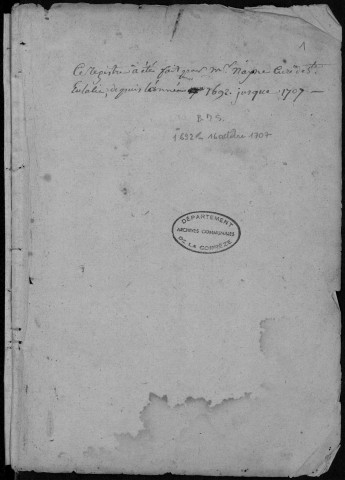 1
Ce registre a été fait par Mr Nayne Curé de Ste
Eulalie, depuis l'année 1692 jusque 1707 —
B M S
1692 16 octobre 1707
DEPARTEMENT
ARCHIVES COMMUNALES
DE LA CORREZE